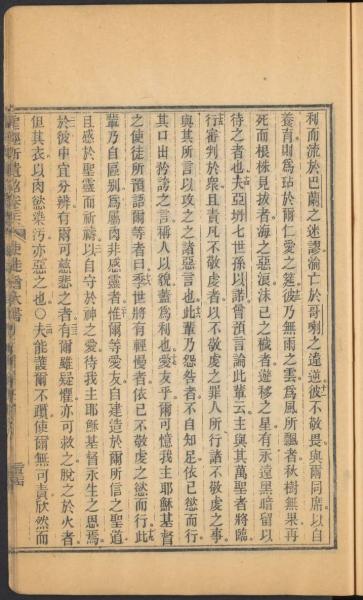 利而流於巴蘭之迷謬淪亡於哥喇之違逆彼不敬畏與爾同席以自
養育則爲玷於爾仁愛之筵彼乃無雨之雲爲風所飄者秋樹無果再
死而根株見拔者海之惡浪沫已之穢者遊移之星有永遠黑暗留以
待之者也夫亞坍七世孫以諾曾預言論此輩云主與其萬聖者將臨
行審判於衆且責凡不敬虔者以不敬虔之罪人所行諸不敬虔之事
與其所言以攻之之諸惡言也此輩乃怨咎者不自知足依已慾而行
其口出矜誇之言稱人以貌蓋爲利也愛友乎爾可憶我主耶穌基督
之使徒所預語爾等者曰季世將有輕慢者依已不敬虔之慾而行此
輩乃自區別爲屬肉非感靈者惟爾等愛友自建造於爾所信之聖道
且感於聖靈而祈禱以自守於神之愛待我主耶穌基督永生之恩焉
於彼中宜分辨有爾可慈悲之者有爾雖疑懼亦可救之脫之於火者
但其衣以肉慾染汚亦惡之也○夫能護爾不躓使爾無可責欣然而
聖經新遺詔卷三 使徒猶大書